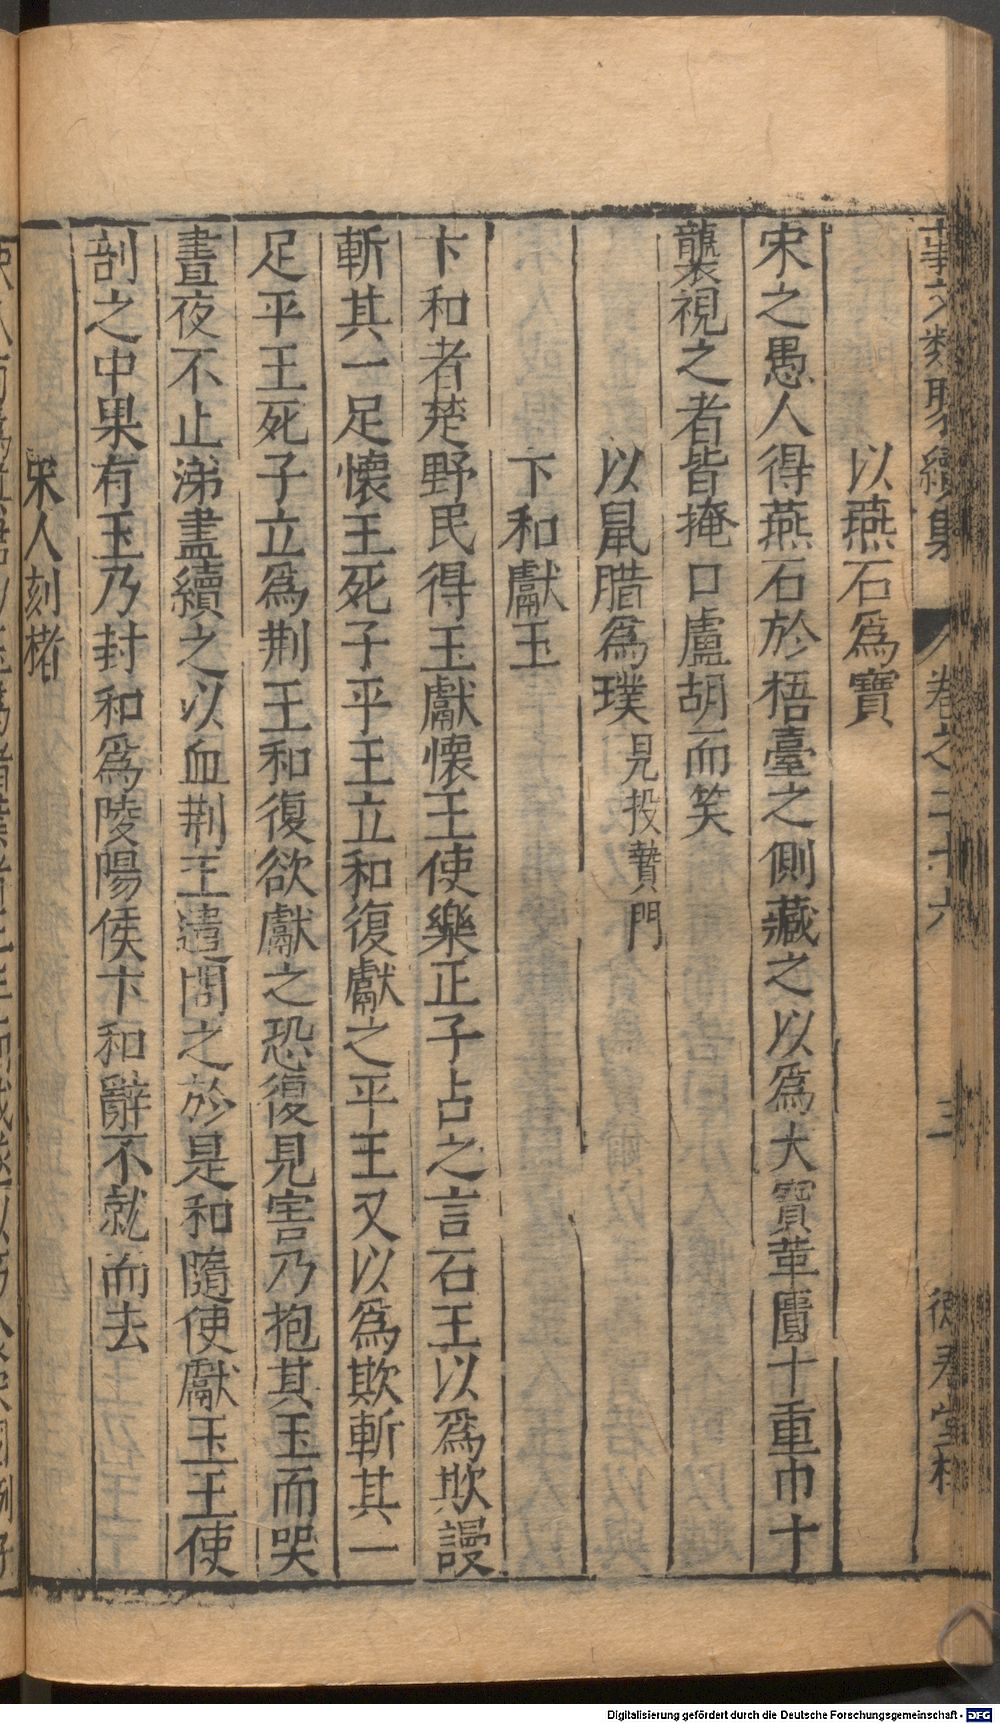 事文類聚續集 卷之二十六 三 德壽堂梓
以燕石爲寶
宋之愚人得燕石於梧臺之側藏之以爲大寶革匱十重巾十
襲視之者皆掩口盧胡而笑
以鼠腊爲璞 見投贄門
卞和獻玉
卞和者楚野民得玉獻懷王使樂正子占之言石王以爲欺謾
斬其一足懷王死子平王立和復獻之平王又以爲欺斬其一
足平王死子立爲荆王和復欲獻之恐復見害乃抱其玉而哭
晝夜不止涕盡續之以血荆王遣問之於是和隨使獻玉王使
剖之中果有玉乃封和爲陵陽侯卞和辭不就而去
宋人刻楮
Digitalisierung gefördert durch die Deutsche Forschungsgemeinschaft - DFG